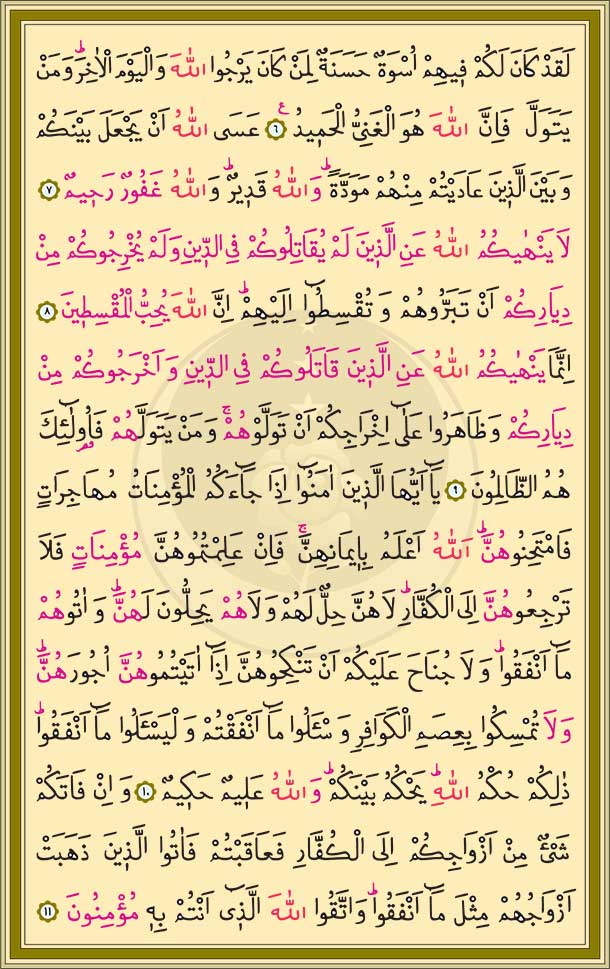 لَقَدْ كَانَ لَكُمْ ف۪يهِمْ اُسْوَةٌ حَسَنَةٌ لِمَنْ كَانَ يَرْجُوا اللّٰهَ وَالْيَوْمَ الْاٰخِرَۜ وَمَنْ
يَتَوَلَّ فَاِنَّ اللّٰهَ هُوَ الْغَنِيُّ الْحَم۪يدُ ﴿٦﴾ ع عَسَى اللّٰهُ اَنْ يَجْعَلَ بَيْنَكُمْ
وَبَيْنَ الَّذ۪ينَ عَادَيْتُمْ مِنْهُمْ مَوَدَّةًۜ وَاللّٰهُ قَد۪يرٌۜ وَاللّٰهُ غَفُورٌ رَح۪يمٌ ﴿٧﴾
لَا يَنْهٰيكُمُ اللّٰهُ عَنِ الَّذ۪ينَ لَمْ يُقَاتِلُوكُمْ فِي الدّ۪ينِ وَلَمْ يُخْرِجُوكُمْ مِنْ
دِيَارِكُمْ اَنْ تَبَرُّوهُمْ وَتُقْسِطُٓوا اِلَيْهِمْۜ اِنَّ اللّٰهَ يُحِبُّ الْمُقْسِط۪ينَ ﴿٨﴾
اِنَّمَا يَنْهٰيكُمُ اللّٰهُ عَنِ الَّذ۪ينَ قَاتَلُوكُمْ فِي الدّ۪ينِ وَاَخْرَجُوكُمْ مِنْ
دِيَارِكُمْ وَظَاهَرُوا عَلٰٓى اِخْرَاجِكُمْ اَنْ تَوَلَّوْهُمْۚ وَمَنْ يَتَوَلَّهُمْ فَاُو۬لٰٓئِكَ
هُمُ الظَّالِمُونَ ﴿٩﴾ يَٓا اَيُّهَا الَّذ۪ينَ اٰمَنُٓوا اِذَا جَٓاءَكُمُ الْمُؤْمِنَاتُ مُهَاجِرَاتٍ
فَامْتَحِنُوهُنَّۜ اَللّٰهُ اَعْلَمُ بِا۪يمَانِهِنَّۚ فَاِنْ عَلِمْتُمُوهُنَّ مُؤْمِنَاتٍ فَلَا
تَرْجِعُوهُنَّ اِلَى الْكُفَّارِۜ لَا هُنَّ حِلٌّ لَهُمْ وَلَا هُمْ يَحِلُّونَ لَهُنَّۜ وَاٰتُوهُمْ
مَٓا اَنْفَقُواۜ وَلَا جُنَاحَ عَلَيْكُمْ اَنْ تَنْكِحُوهُنَّ اِذَٓا اٰتَيْتُمُوهُنَّ اُجُورَهُنَّۜ
وَلَا تُمْسِكُوا بِعِصَمِ الْكَوَافِرِ وَسْـَٔلُوا مَٓا اَنْفَقْتُمْ وَلْيَسْـَٔلُوا مَٓا اَنْفَقُواۜ
ذٰلِكُمْ حُكْمُ اللّٰهِۜ يَحْكُمُ بَيْنَكُمْۜ وَاللّٰهُ عَل۪يمٌ حَك۪يمٌ ﴿١٠﴾ وَاِنْ فَاتَكُمْ
شَيْءٌ مِنْ اَزْوَاجِكُمْ اِلَى الْكُفَّارِ فَعَاقَبْتُمْ فَاٰتُوا الَّذ۪ينَ ذَهَبَتْ
اَزْوَاجُهُمْ مِثْلَ مَٓا اَنْفَقُواۜ وَاتَّقُوا اللّٰهَ الَّذ۪ٓي اَنْتُمْ بِه۪ مُؤْمِنُونَ ﴿١١﴾